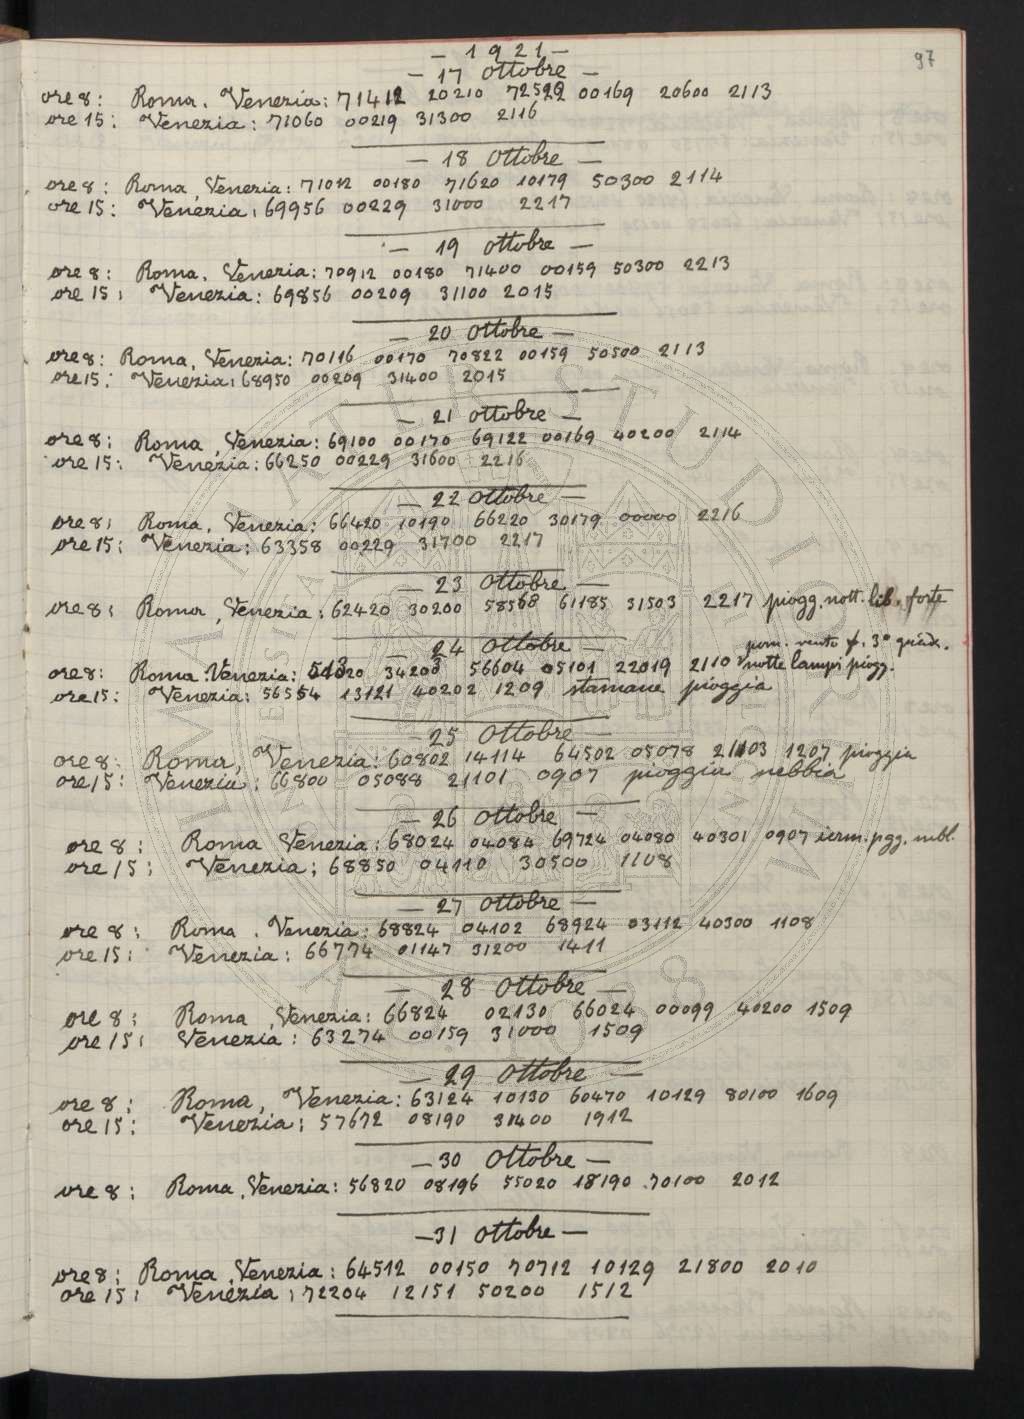 97
— 1921 —
— 17 Ottobre —
ore 8: Roma, Venezia: 71412 20210 72522 00169 20600 2113
ore 15: Venezia: 71060 00219 31300 2116
— 18 Ottobre —
ore 8: Roma, Venezia: 71012 00180 71620 10179 50300 2114
ore 15: Venezia: 69956 00229 31000 2217
— 19 Ottobre —
ore 8: Roma, Venezia: 70912 00180 71400 00159 50300 2213
ore 15: Venezia: 69856 00209 31100 2015
— 20 Ottobre —
ore 8: Roma, Venezia: 70116 00170 70822 00159 50500 2113
ore 15: Venezia: 68950 00209 31400 2015
— 21 Ottobre —
ore 8: Roma, Venezia: 69100 00170 69122 00169 40200 2114
ore 15: Venezia: 66250 00229 31600 2216
— 22 Ottobre —
ore 8: Roma, Venezia: 66420 10190 66220 30179 00000 2216
ore 15: Venezia: 63358 00229 31700 2217
— 23 Ottobre —
ore 8: Roma, Venezia: 62420 30200 58568 61185 31503 2217 piogg. nott. lib. forte
— 24 Ottobre — pom. vento f. 3° quadr.
ore 8: Roma. Venezia: 34203 56604 05101 22019 2110 notte lampi piogg.
ore 15: Venezia: 56554 13121 40202 1209 stamane pioggia
— 25 Ottobre —
ore 8: Roma, Venezia: 60802 14114 64502 05078 21103 1207 pioggia
ore 15: Venezia: 66800 05088 21101 0907 pioggia nebbia
— 26 Ottobre —
ore 8: Roma Venezia: 68024 04084 69724 04080 40301 0907 ierm. pgg. nebl.
ore 15: Venezia: 68850 04110 30500 1108
— 27 Ottobre —
ore 8: Roma, Venezia: 68824 04102 68924 03112 40300 1108
ore 15: Venezia: 66774 01147 31200 1411
— 28 Ottobre —
ore 8: Roma, Venezia: 66824 02130 66024 00099 40200 1509
ore 15: Venezia: 63274 00159 31000 1509
— 29 Ottobre —
ore 8: Roma, Venezia: 63124 10130 60470 10129 80100 1609
ore 15: Venezia: 57672 08190 31400 1912
— 30 Ottobre —
ore 8: Roma, Venezia: 56820 08196 55020 18190 70100 2012
— 31 Ottobre —
ore 8: Roma, Venezia: 64512 00150 70712 10129 21800 2010
ore 15: Venezia: 72204 12151 50200 1512